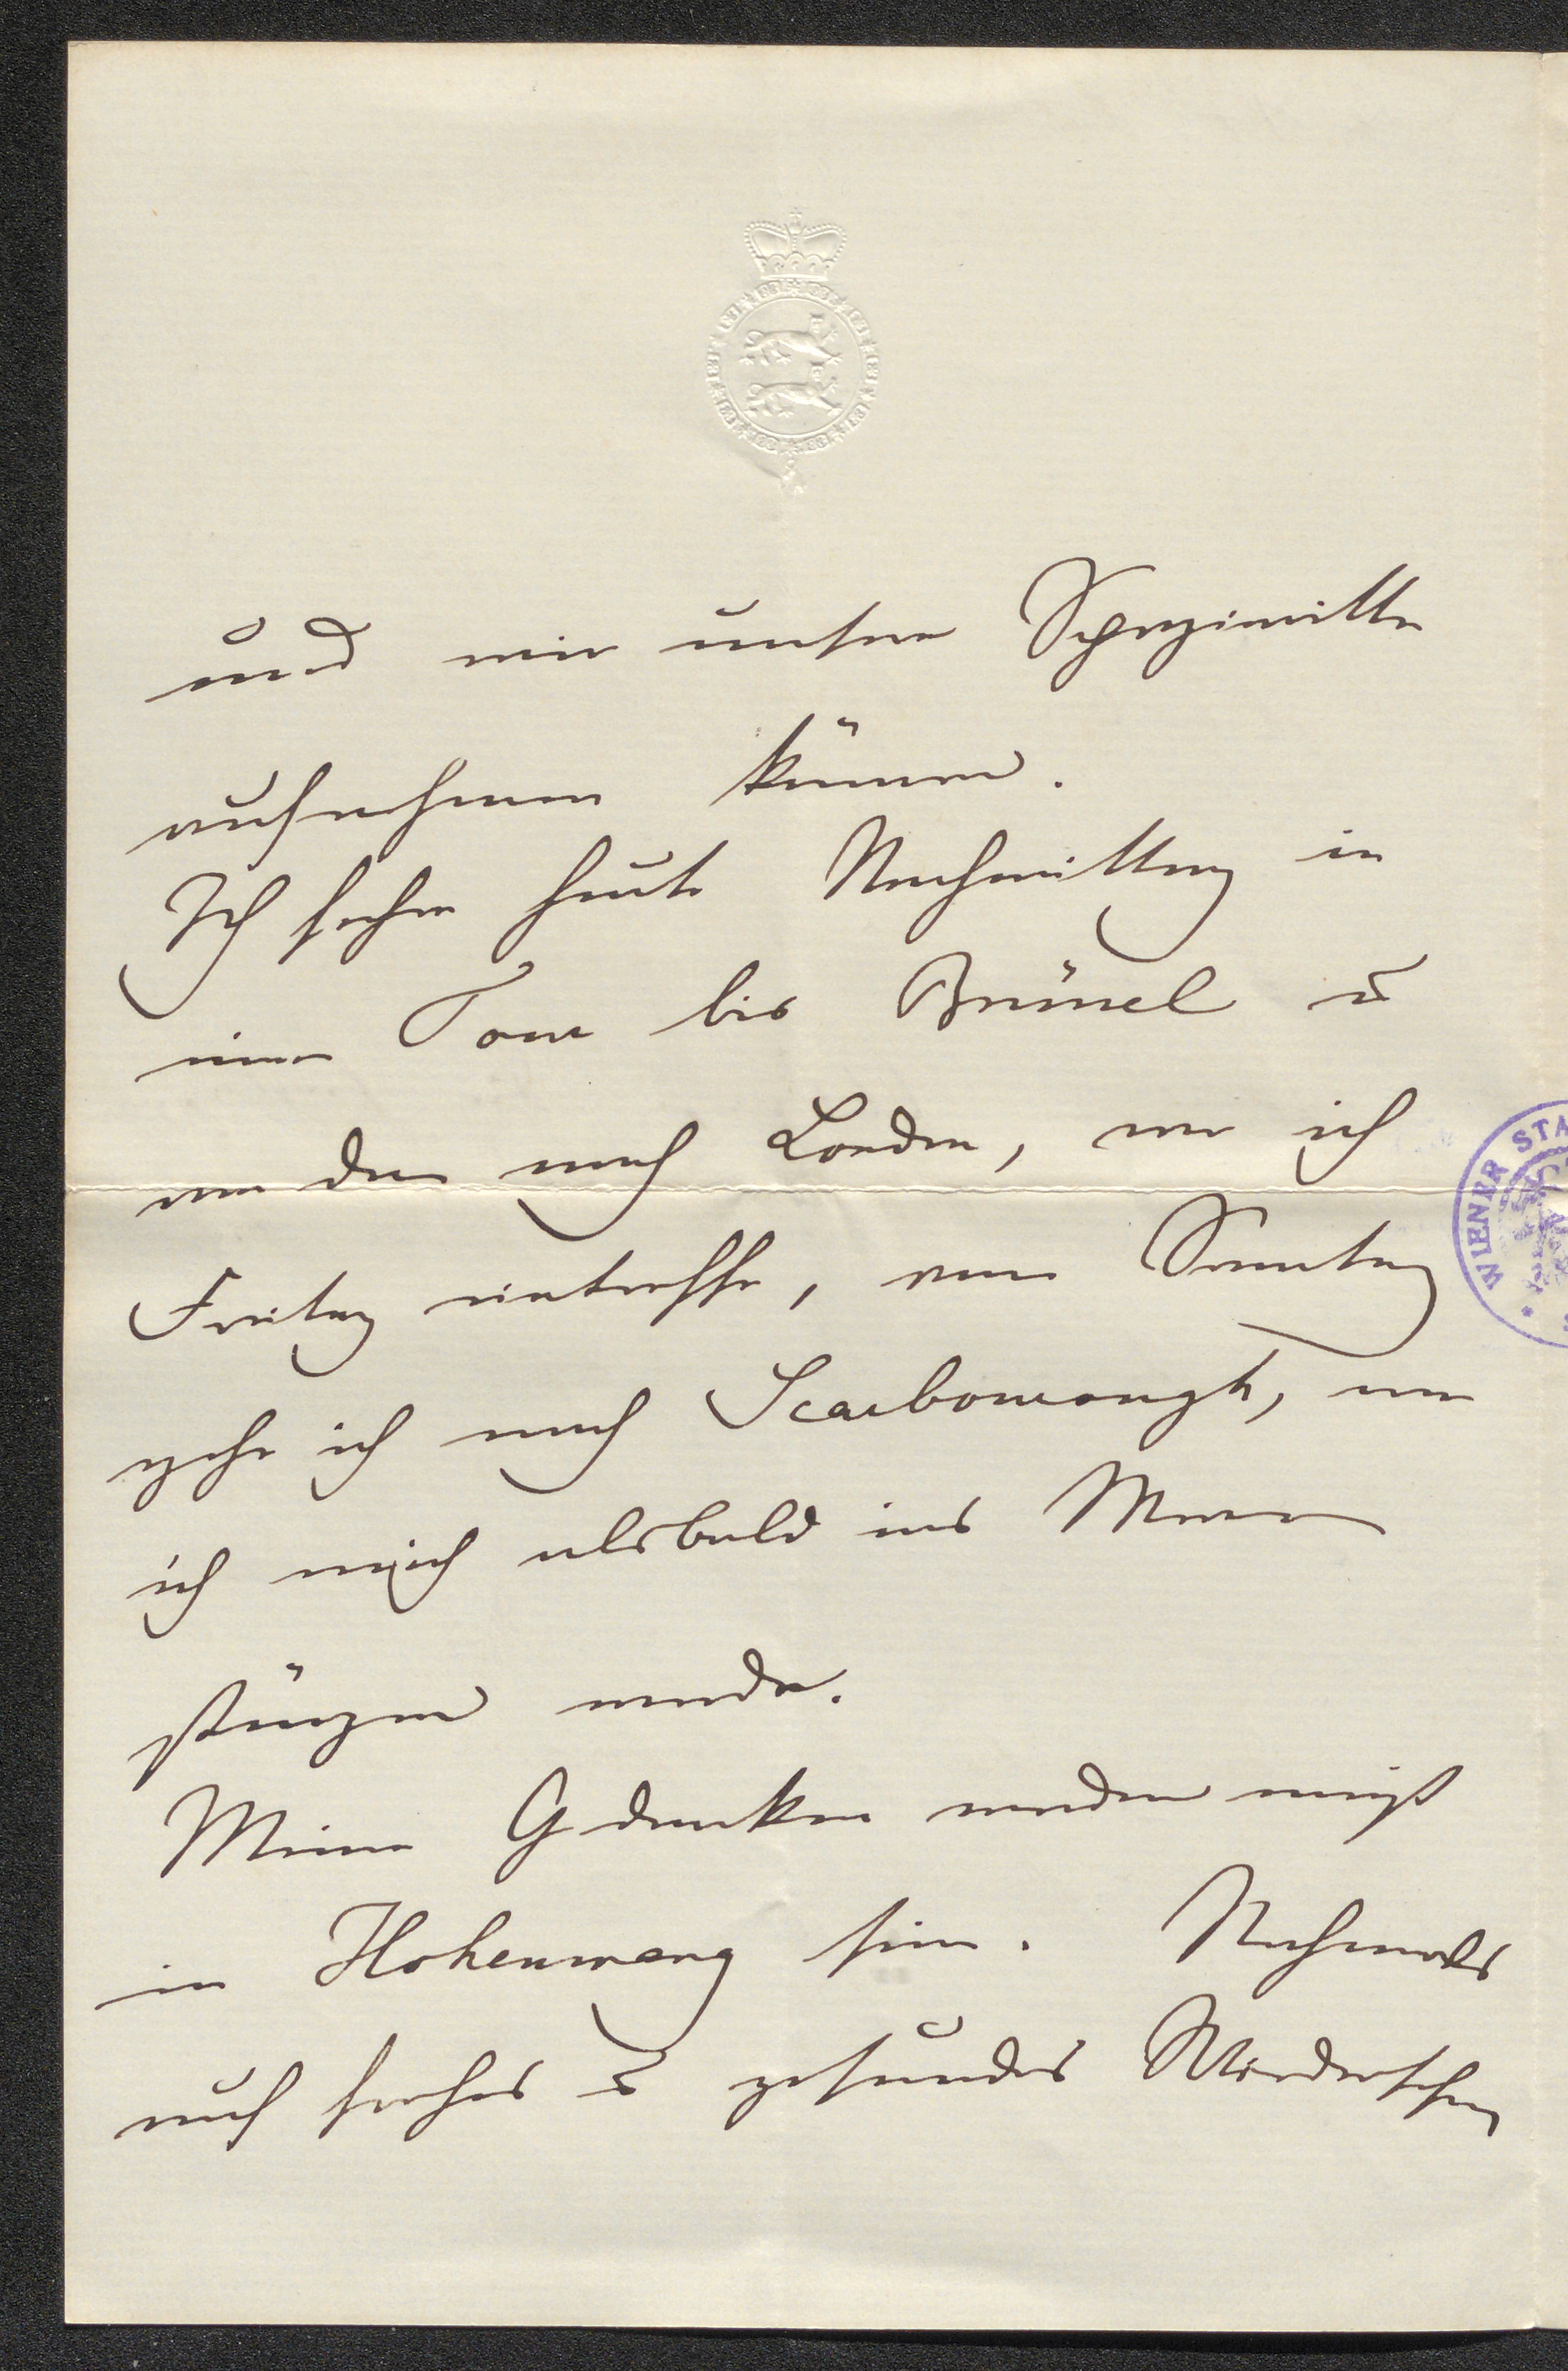 und wir unsere Spazierritte
aufnehmen können.
Ich fahre heute Nachmittag in
einer Tour bis Brüssel u
von da nach London, wo ich
Freitag eintreffe, am Sonntag
gehe ich nach Scarborough, wo
ich mich alsbald ins Meer
stürzen werde.
Meine Gedanken werden meist
in Hohenwang sein. Nochmals
auf frohes u gesundes Wiedersehen
WIENER STA